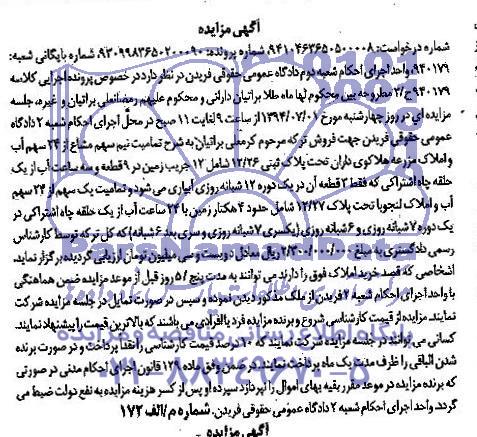 آگهی مزایده
شماره درخواست: ۹۴۱۰۴۶۳۶۵۰۵۰۰۰۰۸ شماره پرونده: ۹۳۰۹۹۸۳۶۵۰۲۰۰۰۹۰ شماره بایگانی شعبه:
۹۴۰۱۷۹ واحد اجرای احکام شعبه دوم دادگاه عمومی حقوقی فریدن در نظر دارد در خصوص پرونده اجرایی کلاسه
۹۴۰۱۷۹ج/۲ مطروحه بین محکوم لها ماه طلا براتیان دارانی و محکوم علیهم رمضانعلی براتیان و غیره، جلسه
مزایده ای در روز چهارشنبه مورخ ۱۳۹۴/۰۷/۰۱ از ساعت ۹ لغایت ۱۱ صبح در محل اجرای احکام شعبه ۲ دادگاه
عمومی حقوقی فریدن جهت فروش ترکه مرحوم کرمعلی براتیان به شرح تمامیت نیم سهم مشاع از ۲۴ سهم آب
و املاک مزرعه هلاکوی داران تحت پلاک ثبتی ۱۲/۲۶ شامل ۱۲ جریب زمین در ۹ قطعه و سه ساعت آب از یک
حلقه چاه اشتراکی که فقط ۲ قطعه آن در یک دوره ۱۲ شبانه روزی آبیاری می شود و تمامیت یک سهم از ۲۴ سهم
آب و املاک لنجوبا تحت پلاک ۱۲/۲۷ شامل حدود ۴ هکتار زمین با ۲۴ ساعت آب از یک حلقه چاه اشتراکی در
یک دوره ۷ شبانه روزی و ۶ شبانه روزی (یکسری ۷ شبانه روزی و سری بعد ۶ شبانه) که کل ترکه توسط کارشناس
رسمی دادگستری به مبلغ ۲/۳۰۰/۰۰۰/۰۰۰ ریال معادل دویست و سی میلیون تومان ارزیابی گردیده برگزار نماید.
اشخاصی که قصد خرید املاک فوق را دارند می توانند به مدت پنج /۵ روز قبل از موعد مزایده ضمن هماهنگی
با واحد اجرای احکام شعبه ۲ فریدن از ملک مذکور دیدن نموده و سپس در صورت تمایل در جلسه مزایده شرکت
نمایند. مزایده از قیمت کارشناسی شروع و برنده مزایده فرد یا افرادی می باشند که بالاترین قیمت را پیشنهاد نمایند.
کسانی می توانند در جلسه مزایده شرکت نمایند که ۱۰ درصد قیمت کارشناسی را نقدا پرداخت و در صورت برنده
شدن الباقی را ظرف مدت یک ماه پرداخت نمایند. در ضمن وفق ماده ۱۲۹ قانون اجرای احکام مدنی در صورتی
که برنده مزایده در موعد مقرر بقیه بهای اموال را نپردازد سپرده او پس از کسر هزینه مزایده به نفع دولت ضبط می
گردد. واحد اجرای احکام شعبه ۲ دادگاه عمومی حقوقی فریدن. شماره م/الف ۱۷۲
آگهی مزایده
ParsNamadData
پایگاه اطلاع رسانی مناقصه و مزایده
۰۲۱-۸۸۳۴۹۶۷۰-۵